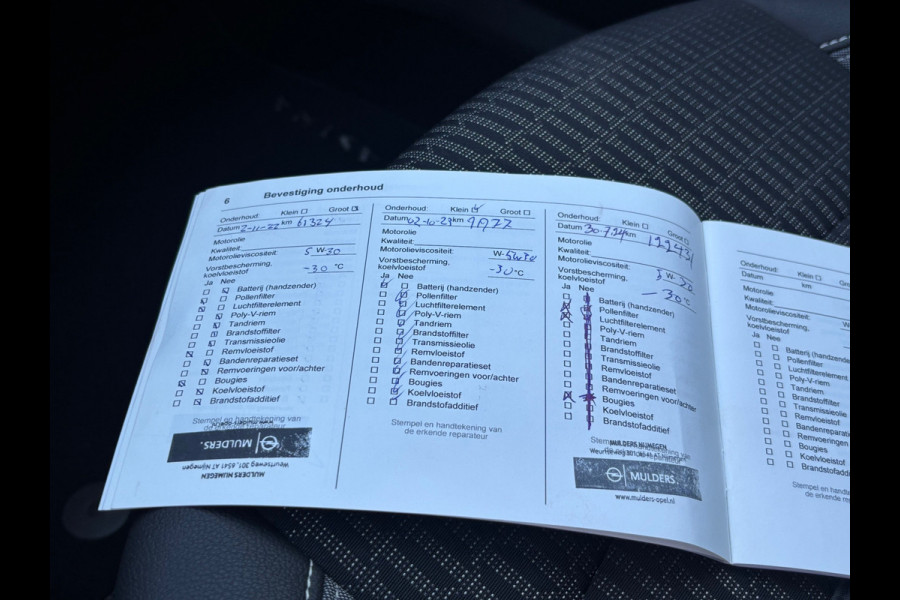 6 Bevestiging onderhoud
Onderhoud: Klein ☐ Groot ☒
Datum 2-11-22 km 61324
Motorolie
Kwaliteit:
Motorolieviscositeit: 5 W-30
Vorstbescherming,
koelvloeistof -30 °C
Ja Nee
Batterij (handzender)
Pollenfilter
Luchtfilterelement
Poly-V-riem
Tandriem
Brandstoffilter
Transmissieolie
Remvloeistof
Bandenreparatieset
Remvoeringen voor/achter
Bougies
Koelvloeistof
Brandstofadditief
Stempel en handtekening van
de erkende reparateur
www.mulders-opel.nl
MULDERS.
Weurtseweg 301, 6541 AT Nijmegen
MULDERS NIJMEGEN
Onderhoud: Klein ☑ Groot ☐
Datum 02-10-23 km
Motorolie
Kwaliteit:
Motorolieviscositeit: W-5W30
Vorstbescherming,
koelvloeistof -30°C
Ja Nee
Batterij (handzender)
Pollenfilter
Luchtfilterelement
Poly-V-riem
Tandriem
Brandstoffilter
Transmissieolie
Remvloeistof
Bandenreparatieset
Remvoeringen voor/achter
Bougies
Koelvloeistof
Brandstofadditief
Stempel en handtekening van
de erkende reparateur
Onderhoud: Klein ☐ Groot ☐
Datum 30-724 km
Motorolie
Kwaliteit:
Motorolieviscositeit: 5 W-30
Vorstbescherming,
koelvloeistof -30°C
Ja Nee
Batterij (handzender)
Pollenfilter
Luchtfilterelement
Poly-V-riem
Tandriem
Brandstoffilter
Transmissieolie
Remvloeistof
Bandenreparatieset
Remvoeringen voor/achter
Bougies
Koelvloeistof
Brandstofadditief
Stempel en handtekening van
MULDERS NIJMEGEN
de erkende reparateur
Weurtseweg 301, 6541 AT Nijmegen
MULDERS
www.mulders-opel.nl
Onderhoud: Klein ☐
Datum km
Motorolie
Kwaliteit:
Motorolieviscositeit: W
Vorstbescherming,
koelvloeistof
Ja Nee
Batterij (handzender
Pollenfilter
Luchtfilterelement
Poly-V-riem
Tandriem
Brandstoffilter
Transmissieolie
Remvloeistof
Bandenreparati
Remvoeringen
Bougies
Koelvloeistof
Brandstofaddi
Stempel en h
de erkende re